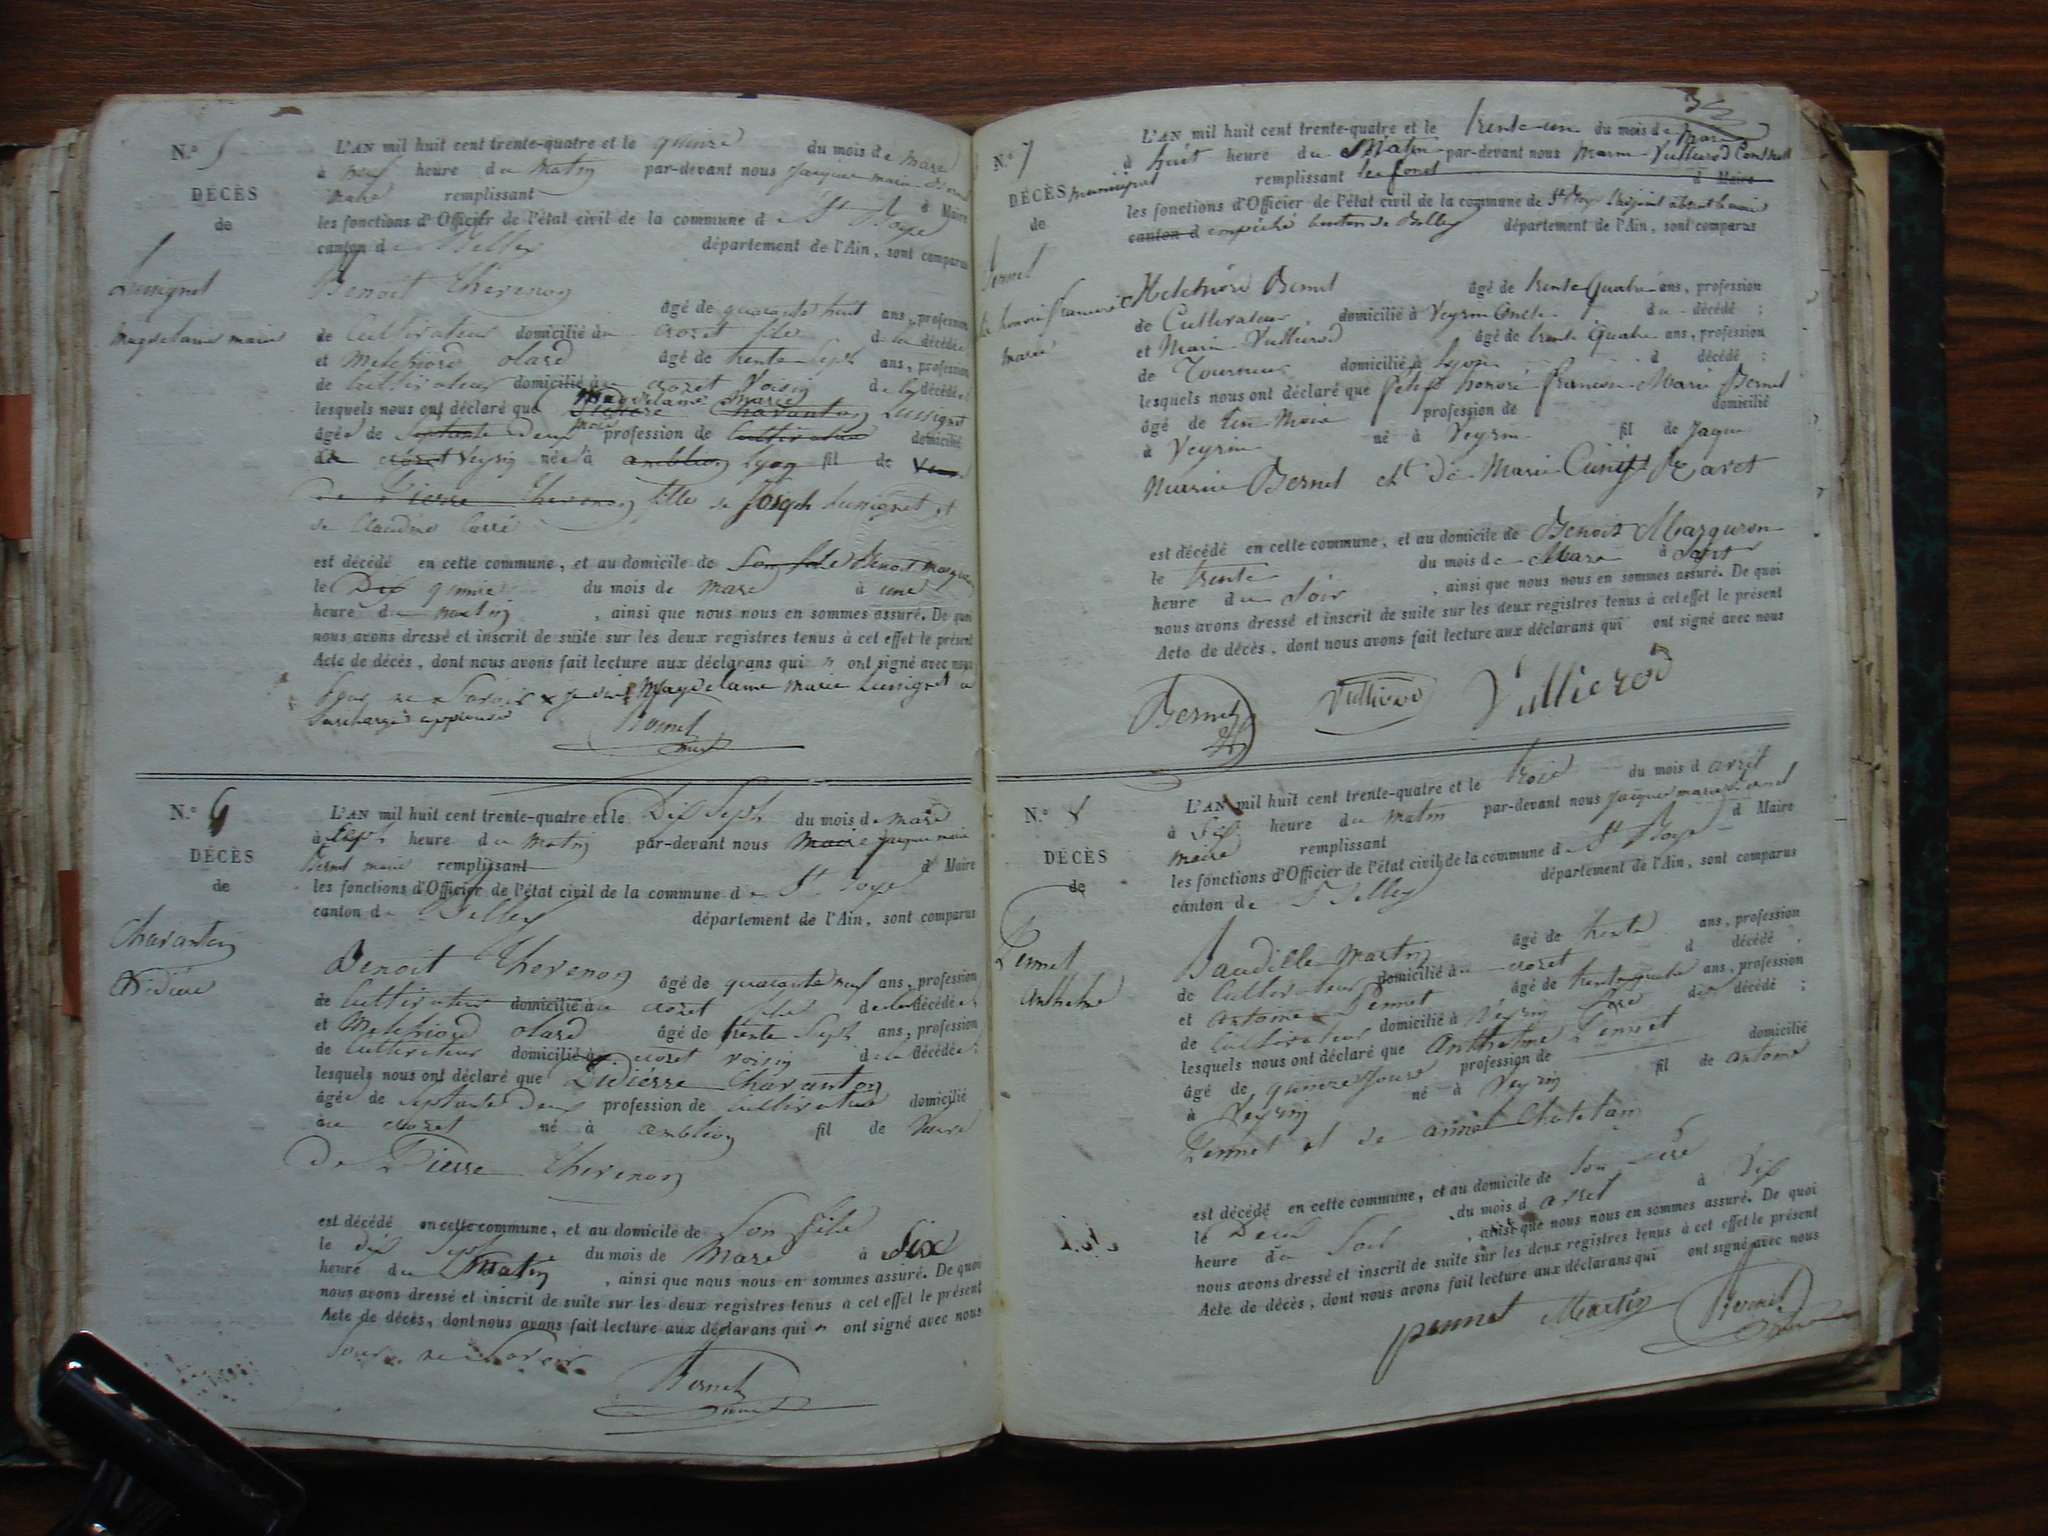 N.o 5
DÉCÈS
de
Lussignet
magdelaine marie
L'AN mil huit cent trente-quatre et le quinze du mois de mars
à neuf heure du matin par-devant nous Jacques marie Bernet
maire remplissant d Maire
les fonctions d'Officier de l'état civil de la commune d e St Boys
canton de Belley département de l'Ain, sont comparus
Benoit thevenon âgé de quarante huit ans, profession
de Cultivateur domicilié au crozet fils de la décédée
et Melchiord olard âgé de trente Sept ans, profession
de Cultivateur domicilié au crozet voisin de la décédée
lesquels nous ont déclaré que Magdelaine Marie Lussignet
âgée de septante deux mois profession de cultivateur domicilié
au crozet Veyrin née à amblion Lyon fil de Veuve
de Pierre thevenon fille de Joseph Lussignet et
de Claudine
est décédé en cette commune, et au domicile de Son fils Benoit
le Dix quinze du mois de mars à une
heure du matin, ainsi que nous nous en sommes assuré. De quoi
nous avons dressé et inscrit de suite sur les deux registres tenus à cet effet le présent
Acte de décès, dont nous avons fait lecture aux déclarans qui n ont signé avec nous
pour ne Savoir je dis Magdelaine marie Lussignet
Surcharge approuvé
Bernet
N.o 6
DÉCÈS
de
Charanton
Didière
L'AN mil huit cent trente-quatre et le Dix Sept du mois de mars
à Sept heure du matin par-devant nous maire Jacques marie
Bernet maire remplissant d Maire
les fonctions d'Officier de l'état civil de la commune d e St Boys
canton de Belley département de l'Ain, sont comparus
Benoit thevenon âgé de quarante neuf ans, profession
de Cultivateur domicilié au crozet fils de la décédée
et Melchiord olard âgé de trente Sept ans, profession
de Cultivateur domicilié au crozet voisin de la décédée;
lesquels nous ont déclaré que Didiérre Charanton
âgée de Septante deux profession de Cultivateur domicilié
au crozet né à amblion fil de Veuve
De Pierre thevenon
est décédé en cette commune, et au domicile de Son fils
le dix Sept du mois de Mars à Six
heure du Matin, ainsi que nous nous en sommes assuré. De quoi
nous avons dressé et inscrit de suite sur les deux registres tenus à cet effet le présent
Acte de décès, dont nous avons fait lecture aux déclarans qui n ont signé avec nous
pour ne Savoir
Bernet
N.o 7
DÉCÈS
de
Bernet
honoré francois
marie
L'AN mil huit cent trente-quatre et le trente-un du mois de Mars
à huit heure du Matin par-devant nous Marin Vullierod Conseiller
municipal remplissant les fonct d Maire
les fonctions d'Officier de l'état civil de la commune de St Boys l'adjoint absent le maire
canton d empéché canton de Belley département de l'Ain, sont comparus
Melchiore Bernet âgé de trente Quatre ans, profession
de Cultivateur domicilié à Veyrin Oncle du décédé;
et Marin Vullierod âgé de trente quatre ans, profession
de Tourneur domicilié à Lyon d décédé;
lesquels nous ont déclaré que honoré francois Marie Bernet
âgé de un Mois profession de domicilié
à Veyrin né à Veyrin fil de Jaque
Marie Bernet et de Marie
est décédé en cette commune, et au domicile de Benoit Marguron
le trente du mois de Mars à
heure du Soir, ainsi que nous nous en sommes assuré. De quoi
nous avons dressé et inscrit de suite sur les deux registres tenus à cet effet le présent
Acte de décès, dont nous avons fait lecture aux déclarans qui ont signé avec nous
Bernet Vullierod Vullierod
N.o 8
DÉCÈS
de
Pennet
Anthelme
L'AN mil huit cent trente-quatre et le trois du mois d avril
à Six heure du matin par-devant nous Jacques marie Bernet
maire remplissant d Maire
les fonctions d'Officier de l'état civil de la commune d e St Boys
canton de Belley département de l'Ain, sont comparus
Baudille Martin âgé de trente ans, profession
de Cultivateur domicilié au crozet d décédé,
et Antoine Pennet âgé de trente quatre ans, profession
de Cultivateur domicilié à Veyrin Père du décédé;
lesquels nous ont déclaré que Anthelme Pennet
âgé de quinze Jours profession de domicilié
à Veyrin né à Veyrin fil de antoine
Pennet et de Chatelain
est décédé en cette commune, et au domicile de Son père
le Deux du mois d avril à Dix
heure du Soir, ainsi que nous nous en sommes assuré. De quoi
nous avons dressé et inscrit de suite sur les deux registres tenus à cet effet le présent
Acte de décès, dont nous avons fait lecture aux déclarans qui ont signé avec nous
pennet Martin Bernet